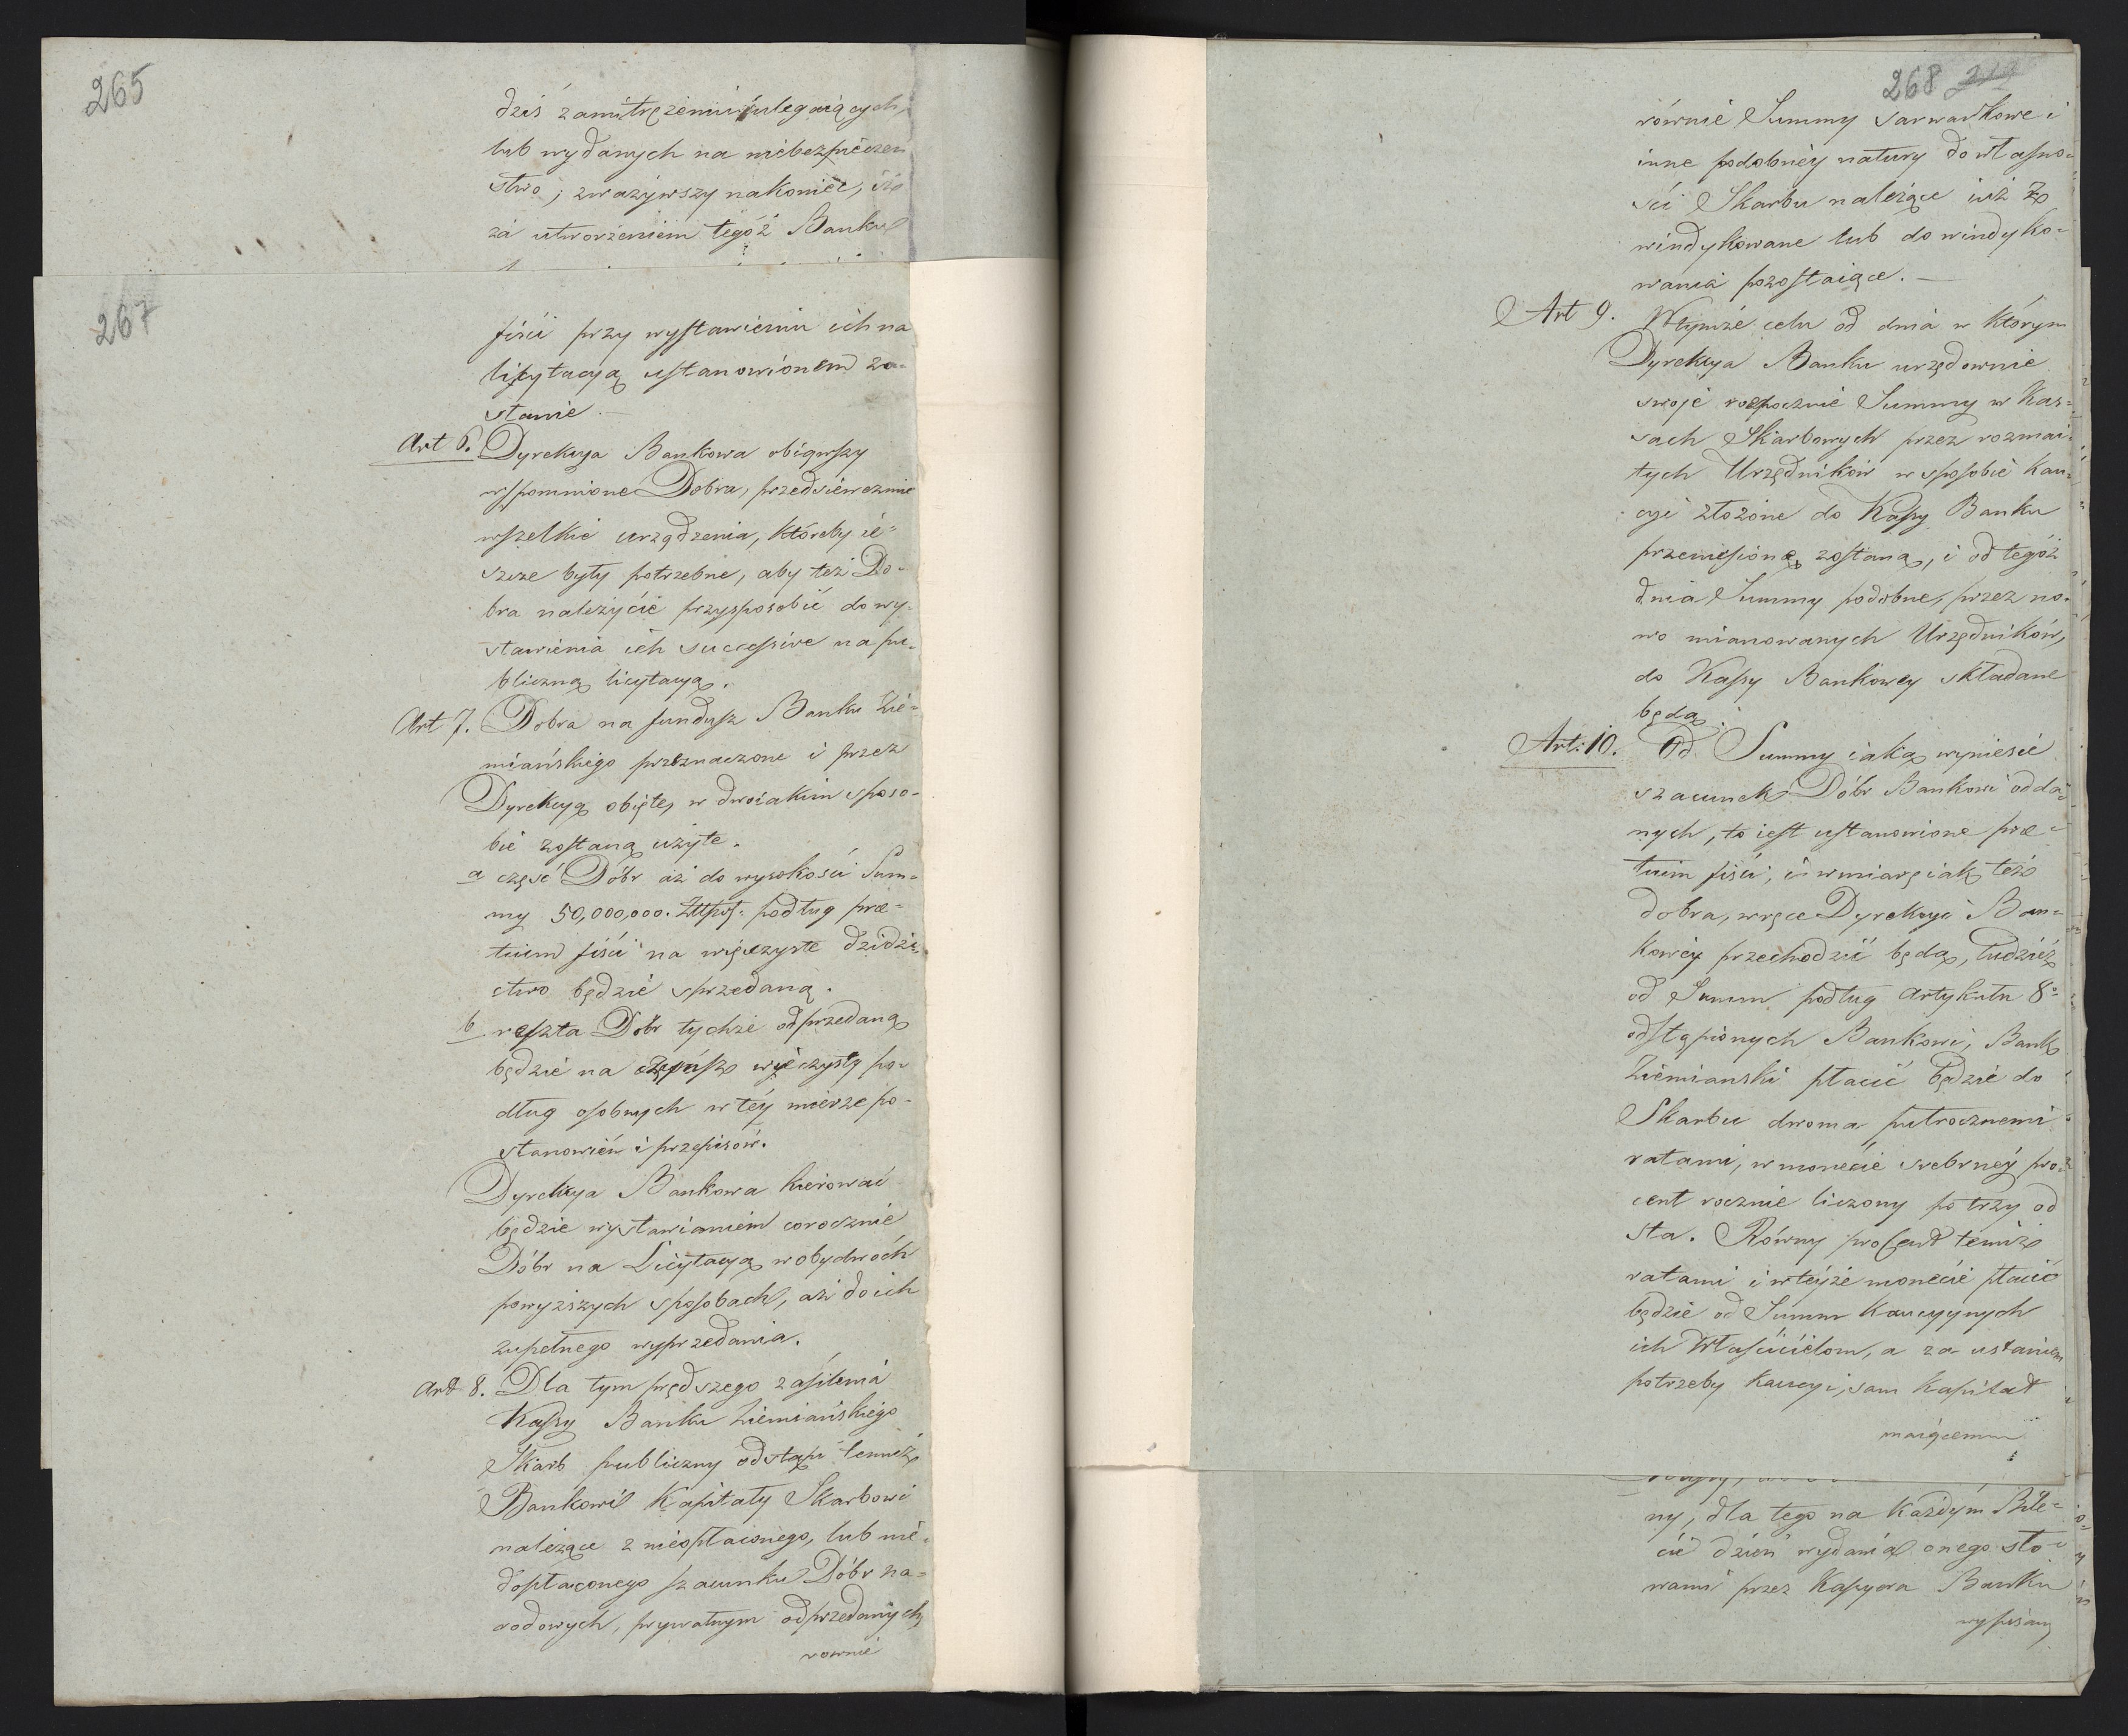 265
dziś zamitrężeniu ulegaiących,
lub wydanych na niebezpieczeń
stwo; zważywszy nakoniec, iż
za utworzeniem tegóż Banku
267
fisci przy wystawieniu ich na
licytacyą ustanowionem zo=
stanie.—
Art 6. Dyrekcya Bankowa obiąwszy
wspomnione Dobra, przedsieweźmie
wszelkie urządzenia, któreby ie=
szcze były potrzebne, aby też Do=
bra należycie przysposobić do wy=
stawienia ich successive na pu=
bliczną licytacyą.
Art 7. Dobra na fundusz Banku Zie=
miańskiego przeznaczone i przez
Dyrekcyą obięte, w dwoiakim sposo=
bie zostaną użyte.
a część Dóbr aż do wysokości Sum=
my 50,000,000. Złłpol: podług prae=
tium fisci na wieczyste dziedzi=
ctwo będzie sprzedaną.
b reszta Dóbr tychże odprzedaną
będzie na czynsz wieczysty po=
dług osobnych w téy mierze po=
stanowień i przepisów.
Dyrekcya Bankowa kierować
będzie wystawianiem corocznie
Dóbr na Licytacyą w obydwóch
powyższych sposobach, aż do ich
zupełnego wyprzedania.
Art 8. Dla tym prędszego zasilenia
Kassy Banku Ziemiańskiego
Skarb publiczny odstąpi temuż
Bankowi Kapitały Skarbowi
należące z nieopłaconego, lub nie=
dopłaconego szacunku Dóbr na=
rodowych, prywatnym odprzedanych,
rownie
268
równie Summy szarwarkowe i
inne podobnéy natury do własno=
ści Skarbu należące iuż z
windykowane lub do windyko=
wania pozostaiące.—
Art 9. W tymże celu od dnia w którym
Dyrekcya Banku urzędownie
swoje rozpocznie Summy w Kas=
sach Skarbowych przez rozmai=
tych Urzędników w sposobie kau=
cyi złożone do Kassy Banku
przeniesione zostaną, i od tegóż
dnia Summy podobne, przez no=
wo mianowanych Urzędników,
do Kassy Bankowey składane
będą.
Art: 10. Od Summy iaką wyniesie
szacunek Dóbr Bankowi odda=
nych, to iest ustanowione prae=
tium fisci, i w miarę iak też
dobra, w ręce Dyrekcyi Ban=
kowéy przechodzić będą, tudzież
od Summ podług Artykułu 8º
odstąpionych Bankowi, Bank
Ziemianski płacić będzie do
Skarbu dwoma pułrocznemi
ratami, w monecie srebrnéy pro=
cent rocznie liczony po trzy od
sta. Równy procent temiż
ratami i w teyże monecie płacić
będzie od Summ kaucyynych
ich Właścicielom, a za ustaniem
potrzeby kaucyi, sam kapitał
maiącemu
ny, dla tego na każdym Bile=
cie dzień wydania onego sło=
wami przez Kassyera Banku
wypisany